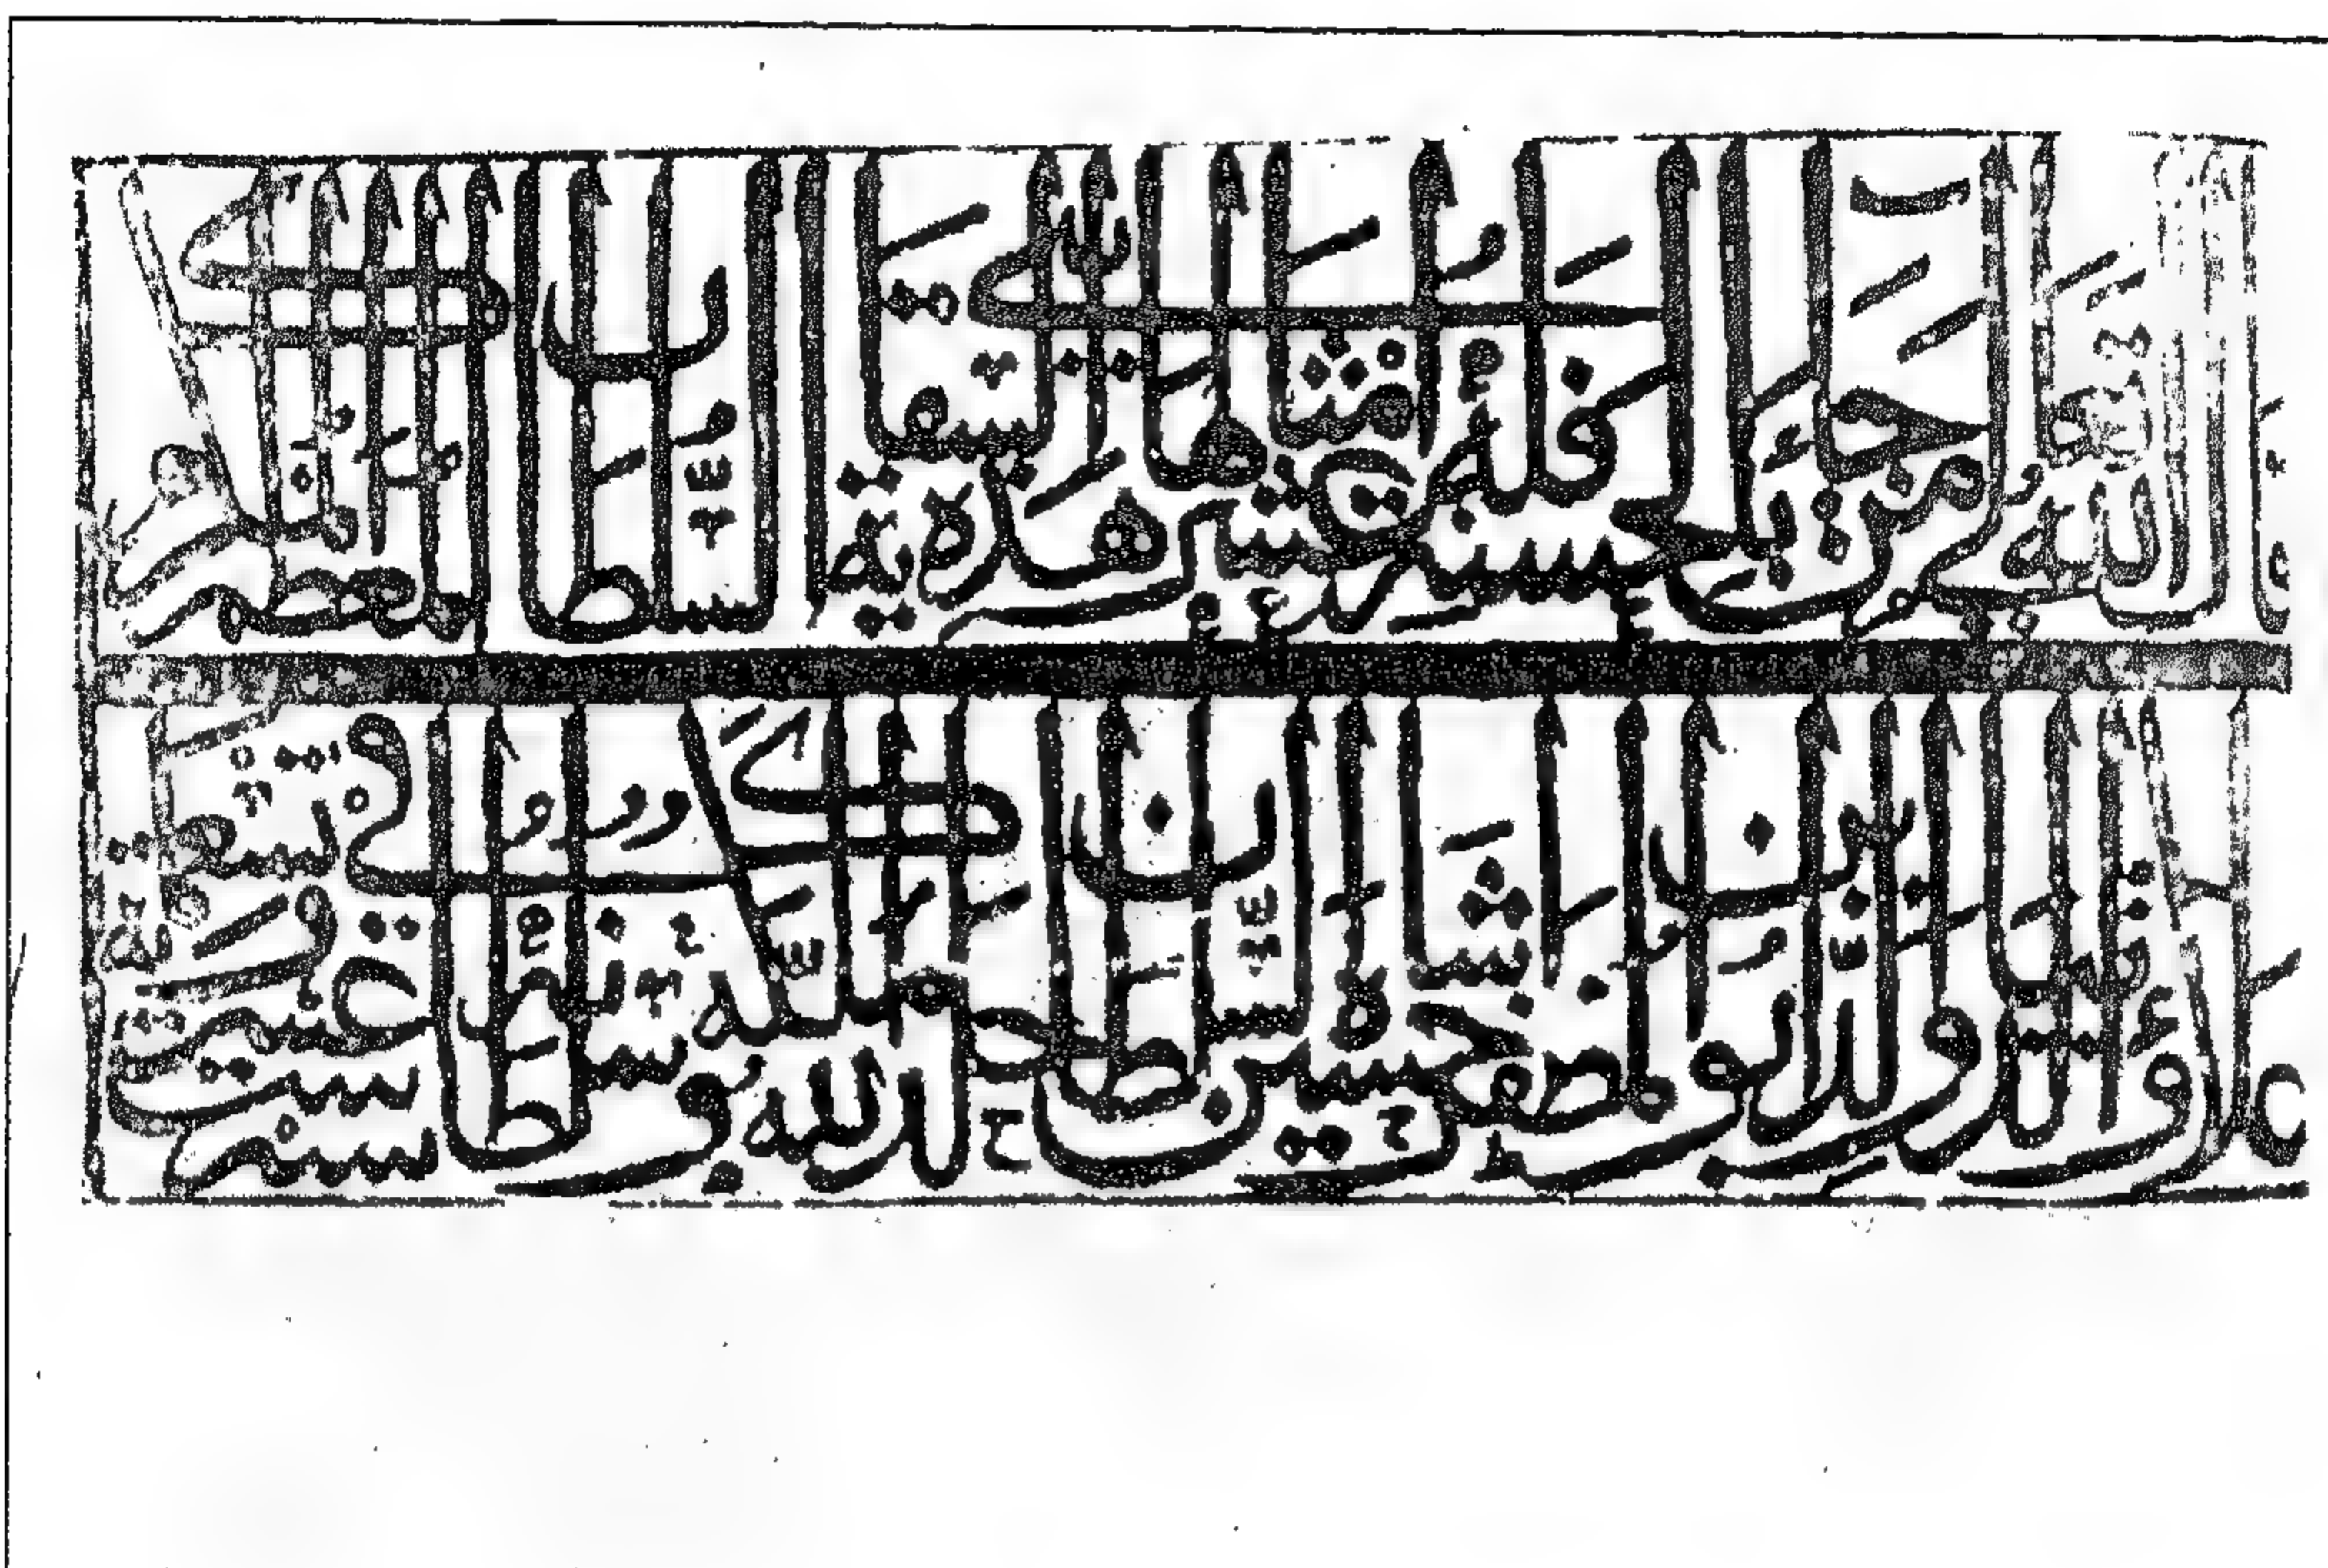 قال الله تعالى من جاء بالحسنة فله عشر امثالها هذه السقاية السلطان المعظم المكرم
علاء الدنيا والدين ابو المظفر حسين شاه السلطان خلد الله ملكه وسلطانه في سنة ست عشر وتسعمائة